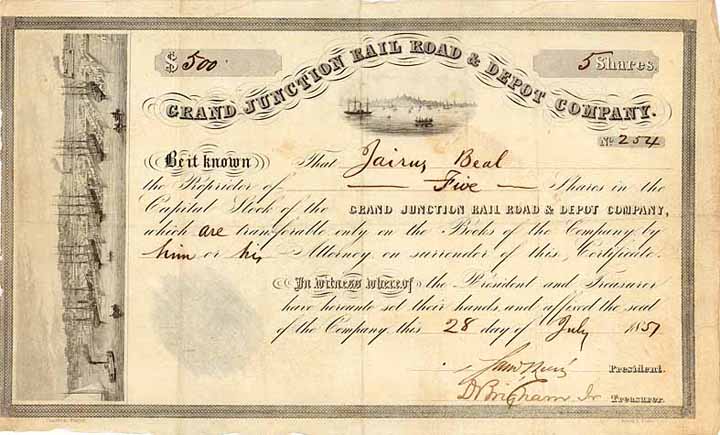 $ 500
5 Shares.
GRAND JUNCTION RAIL ROAD & DEPOT COMPANY.
No 254
Be it known That Jairus Beal
the Proprietor of Five Shares in the
Capital Stock of the GRAND JUNCTION RAIL ROAD & DEPOT COMPANY,
which are transferable only on the Books of the Company by
him or his Attorney on surrender of this Certificate.
In witness whereof the President and Treasurer
have hereunto set their hands and affixed the seal
of the Company this 28 day of July 1851
President.
D Brigham Jr Treasurer.